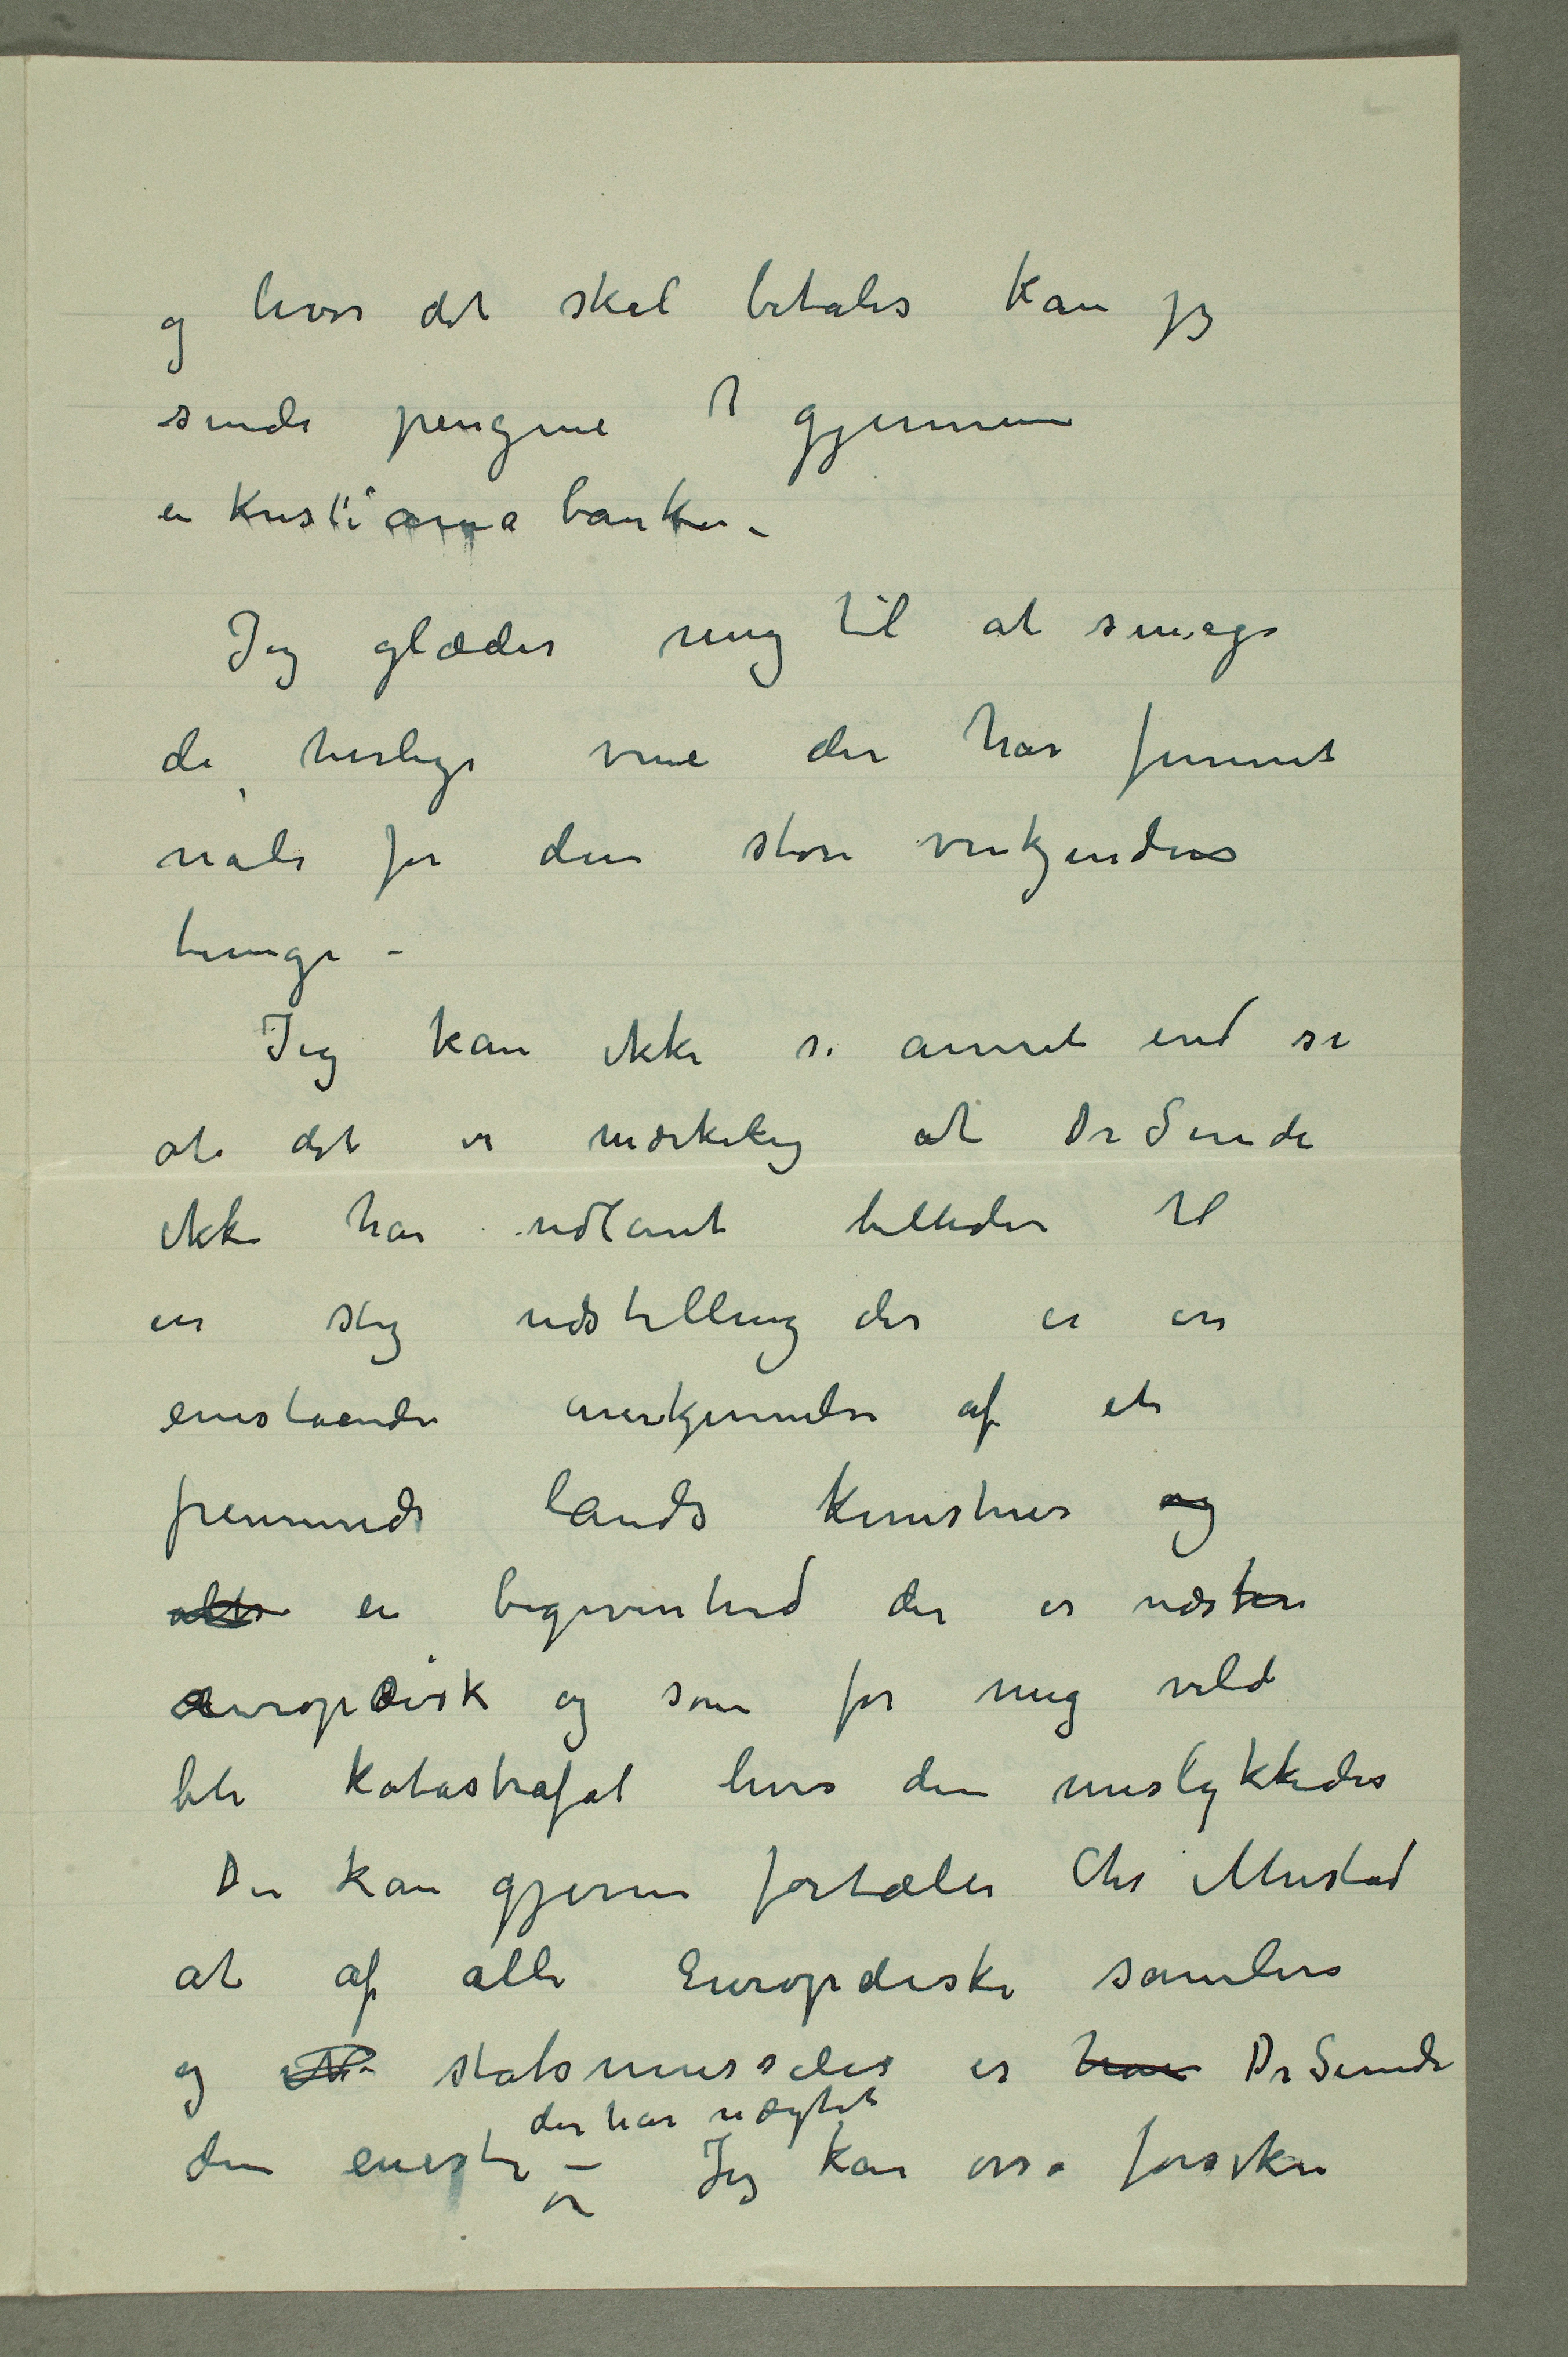 og hvor det skal betales kan jeg
sende pengene gjennem
en Kristiania banker –
Jeg glæder mig til at smage
de herlige vine der har funnet
nåde for den store vinkjenders
tunge –
Jeg kan ikke si annet end si
at det er mærkelig at Dr Sunde
ikke har udlånt billeder til
en slig udstilling der er en
enestående anerkjennelse af et
fremmeds lands kunstner og
alt en begivenhed der er næsten
æuropæisk og som for mig vild
bli katastrafal hvis den mislykkedes
Du kan gjerne fortæle Chr Mustad
at af alle Europæiske samlere
og statsmusseer er har Dr Sunde
den eneste der har nægtet – Jeg kan osså forsikre